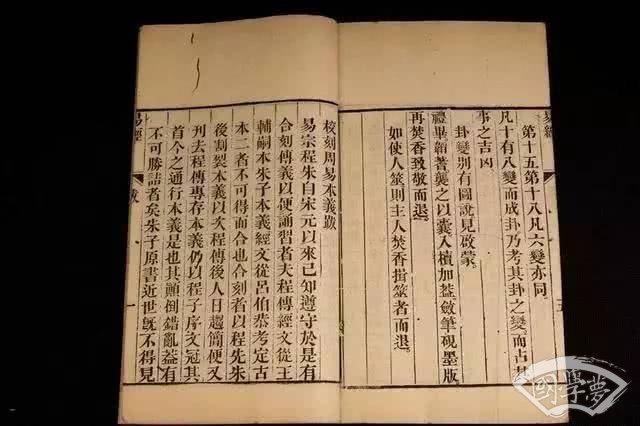 易經
第十五第十八凡六變亦同
凡十有八變而成卦乃考其卦之變而占其
事之吉凶
卦變別有圖說見啟蒙
禮畢韜蓍襲之以囊入櫝加葢斂筆硯墨版
再焚香致敬而退
如使人筮則主人焚香揖筮者而退
五
校刻周易本義跋
易宗程朱自宋元以來已知遵守於是有
合刻傳義以便誦習者夫程傳經文從王
輔嗣本朱子本義經文從呂伯恭考定古
本二者不可得而合也合刻者以程先朱
後割裂本義以次程傳後人日趨簡便又
刊去程傳專存本義仍以程子序文冠其
首今之通行本義是也其顛倒錯亂葢有
不可勝詰者矣朱子原書近世旣不得見
易經
跋
一
國學夢